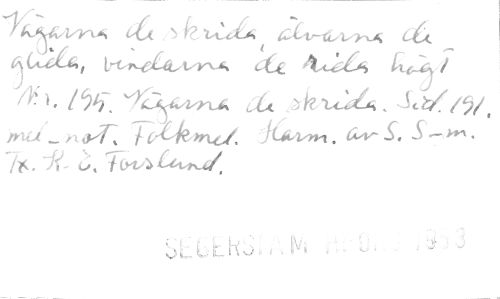 Vågarna de skrida, älvarna de
glida, vindarna de rida högt
Nr. 195. Vågarna de skrida. Sid. 191.
mel-not. Folkmel. Harm. av S. S-m.
Tx. K-E. Forslund.
SEGERSTAM 1953